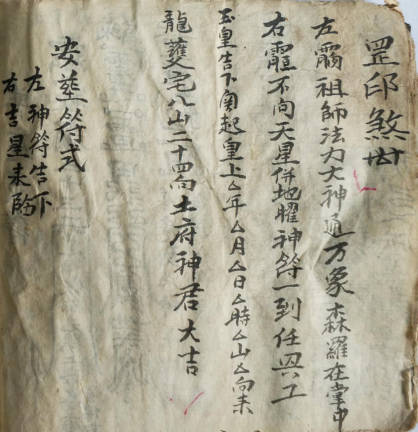 罡印煞咁
左𩆜祖師法力大神通万象森羅在掌中
右𩆜不问天星併地曜神符一到任興工
玉皇告下角起皇上厶年厶月厶日厶時厶山厶向来
龍雙宅八山二十四向土府神君大吉
安塟符式
左神符告下
右吉星来临